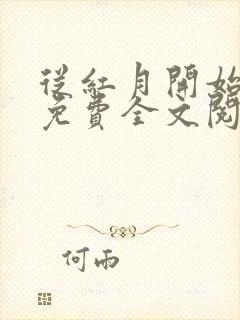 從紅月開始
免費全文閱
何雨